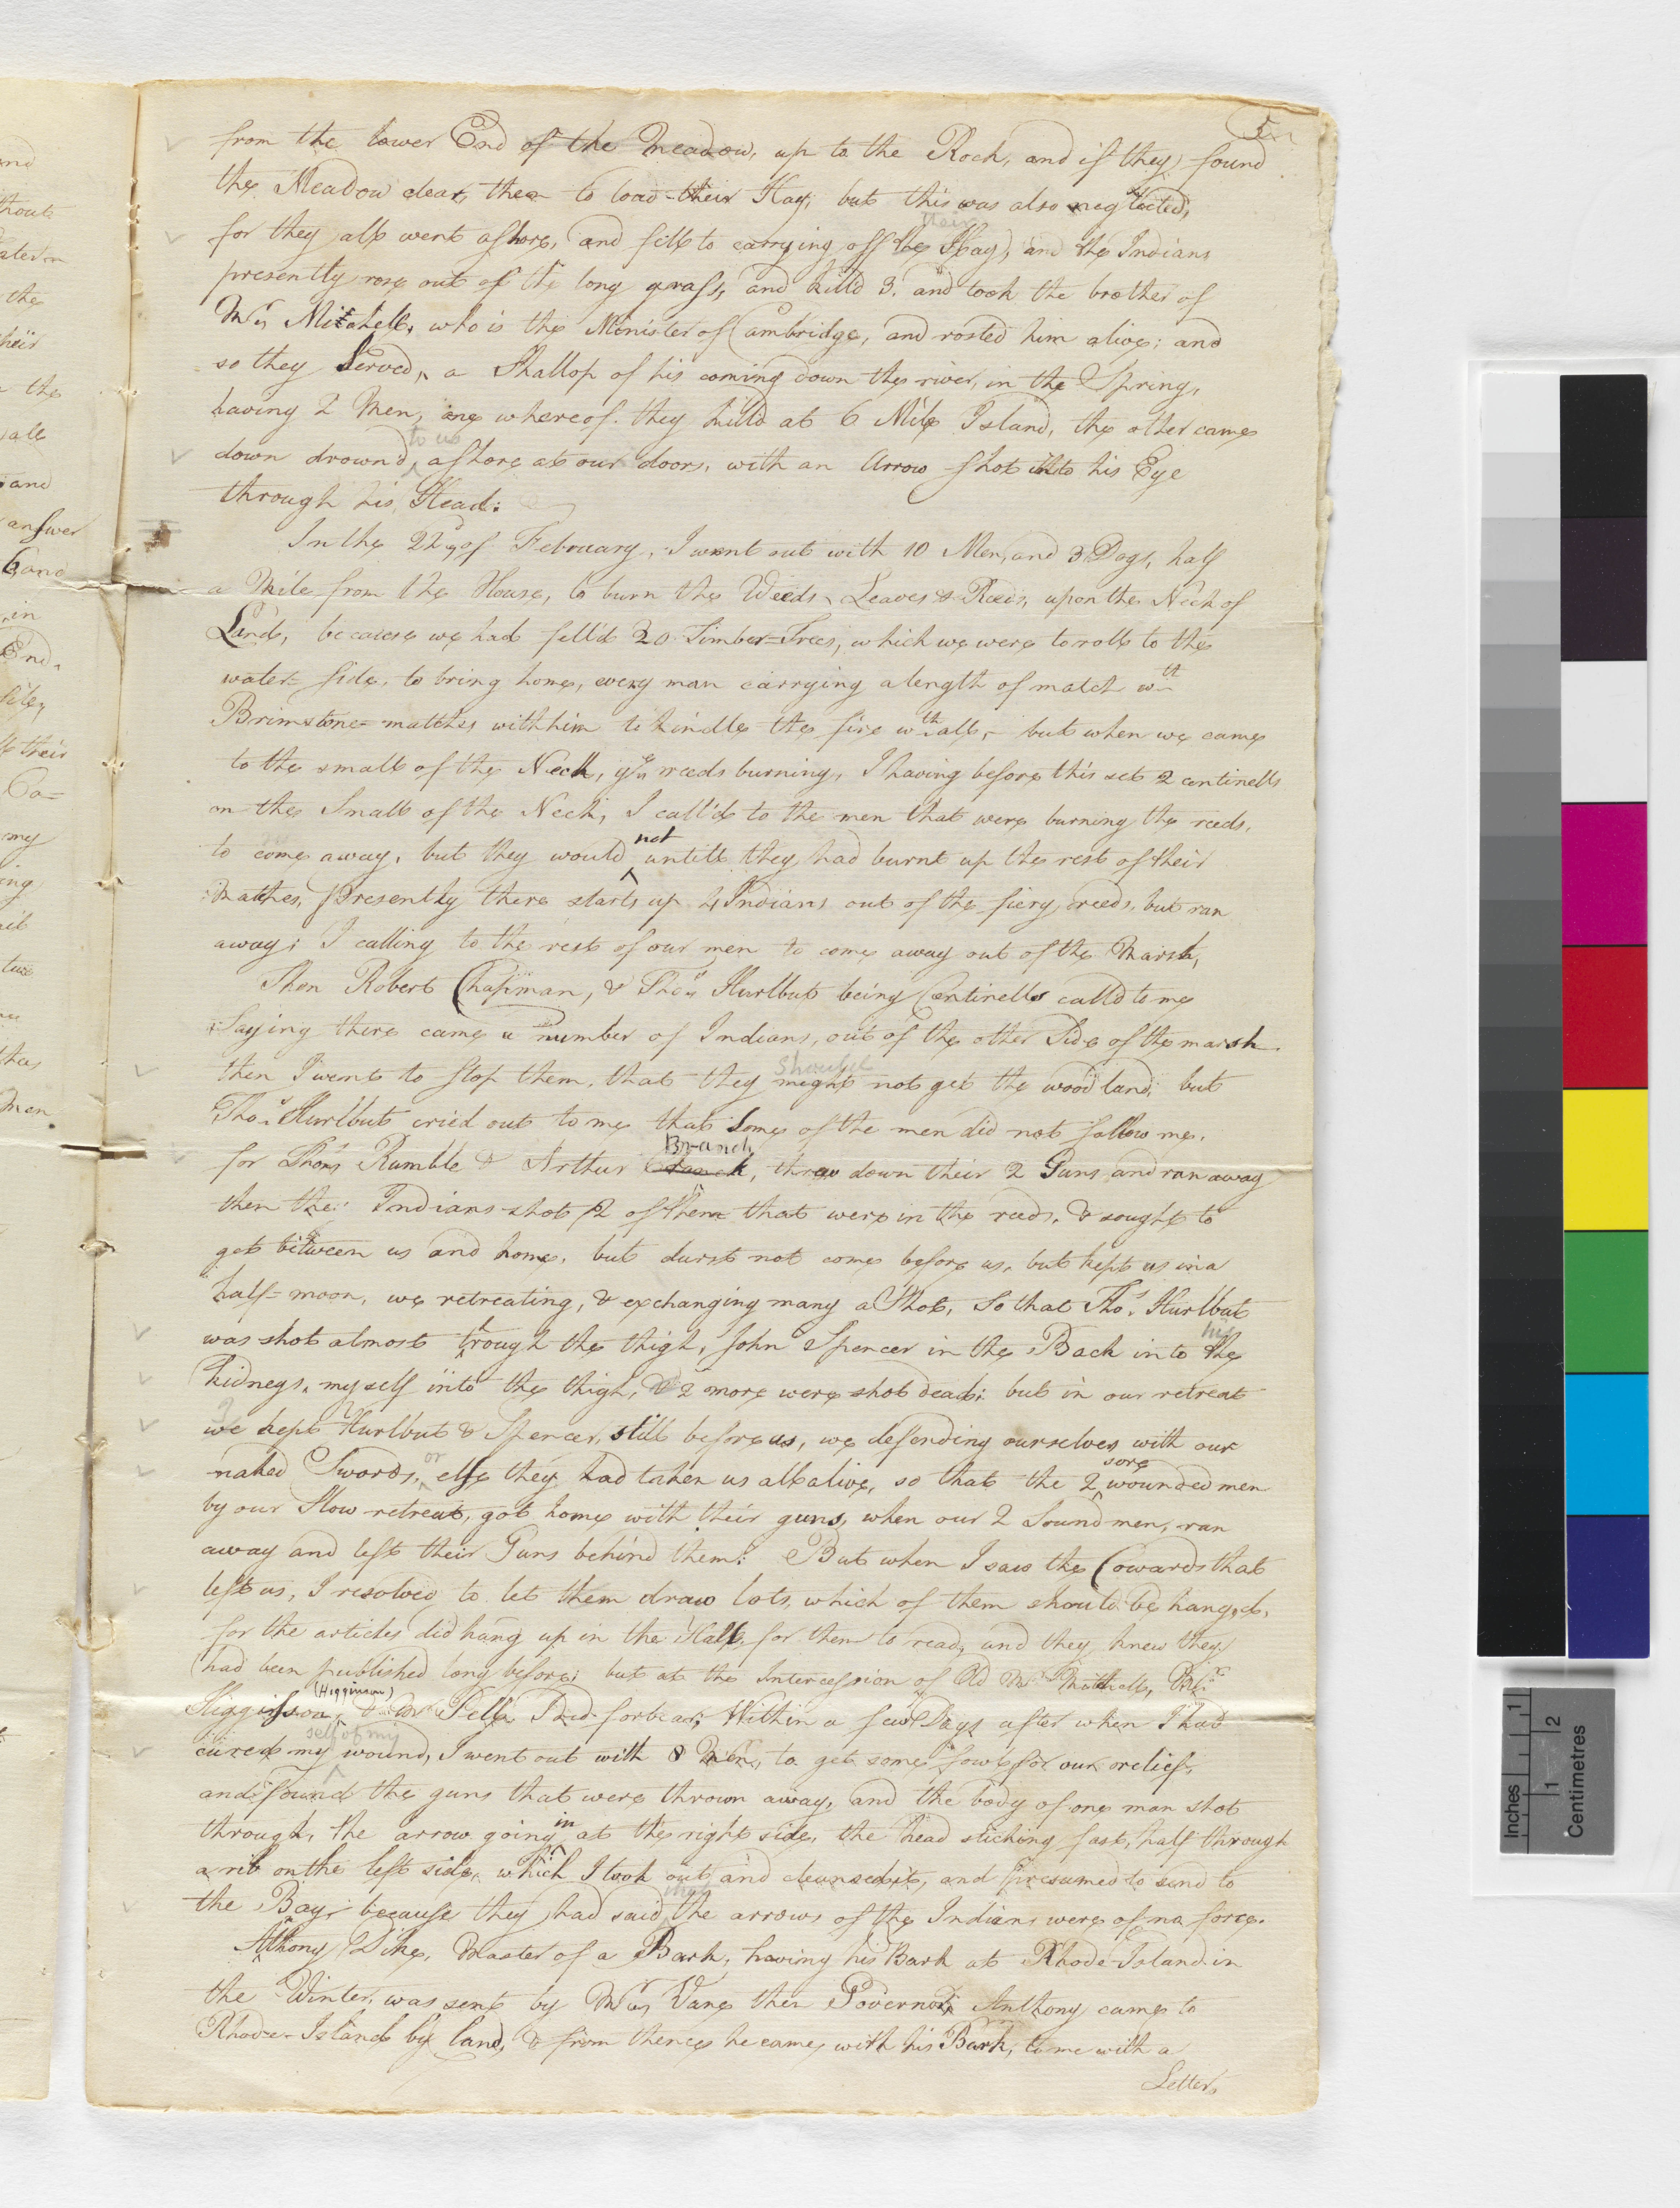 5
from the lower End of the meadow, up to the Rock, and if they found
the Meadow clear, then to load their Hay; but this was also neglected,
for they all went ashore, and fell to carrying off the Hay, and the Indians
their
presently rose out of the long grass, and kill'd 3. and took the brother of
Mr. Mitchell, who is the Minister of Cambridge, and rosted him alive; and
so they Served, a Shallop of his coming down the river, in the Spring,
having 2 Men, one whereof they kill'd at 6 Mile Island, the other came
down drown'd, to us ashore at our doors, with an Arrow shot into his Eye
through his Head:
In the 22d of February, I went out with 10 Men, and 3 Dogs, half
a Mile from the House, to burn the Weeds, Leaves & Reeds, upon the Neck of
Land, because we had fell'd 20 Timber=Trees, which we were to roll to the
water-side, to bring home, every man carrying a length of match wth
Brimstone=matches with him to kindle the fire wthall, but when we came
to the small of the Neck, ye reeds burning, I having before this set 2 centinells
on the Small of the Neck, I call'd to the men that were burning the reeds,
to come away, but they would not untill they had burnt up the rest of their
Matches, Presently there starts up 4 Indians out of the fiery reeds, but ran
away; I calling to the rest of our men to come away out of the Marsh,
Then Robert Chapman, & Thos. Hurlbut being Centinells call'd to me
Saying there came a number of Indians, out of the other Side of the marsh.
then I went to stop them, that they might not get the wood land; but
should
Thos. Hurlbut cried out to me that Some of the men did not follow me,
for Thos. Rumble & Arthur Branch, threw down their 2 Guns and ran away
then the Indians shot 2 of them that were in the reeds, & sought to
get between us and home, but durst not come before us, but kept us in a
half=moon, we retreating, & exchanging many a Shot, So that Thos. Hurlbut
was shot almost through the thigh, John Spencer in the Back into the
his
Kidneys, myself into the thigh, & 2 more were shot dead; but in our retreat
we kept Hurlbut & Spencer, still before us, we defending ourselves with our
naked Swords, or else they had taken us all alive, so that the 2 sore wounded men
by our Slow retreat, got home with their guns, when our 2 Sound men, ran
away and left their Guns behind them: But when I saw the Cowards that
left us, I resolved to let them draw lots, which of them should be hang,d,
for the articles did hang up in the Hall, for them to read, and they knew they
had been published long before; but at the Intercession of Old Mr. Mitchell, Mr.
(Higginson)
Higgisson, & Mr Pell, I did forbear; Within a few Days after when I had
cured my self of my wound, I went out with 8 Men, to get some fowl for our relief,
and found the guns that were thrown away, and the body of one man shot
through, the arrow going in at the right side, the head sticking fast, half through
a rib on the left side, which I took out and cleansed it, and presumed to send to
the Bay, because they had said that the arrows of the Indians were of no force.
Athony Dike, Master of a Bark, having his Bark at Rhode-Island in
the Winter, was sent by Mr. Vane then Governor, Anthony came to
Rhode-Island by land, & from thence he came with his Bark, to me with a
Letter,